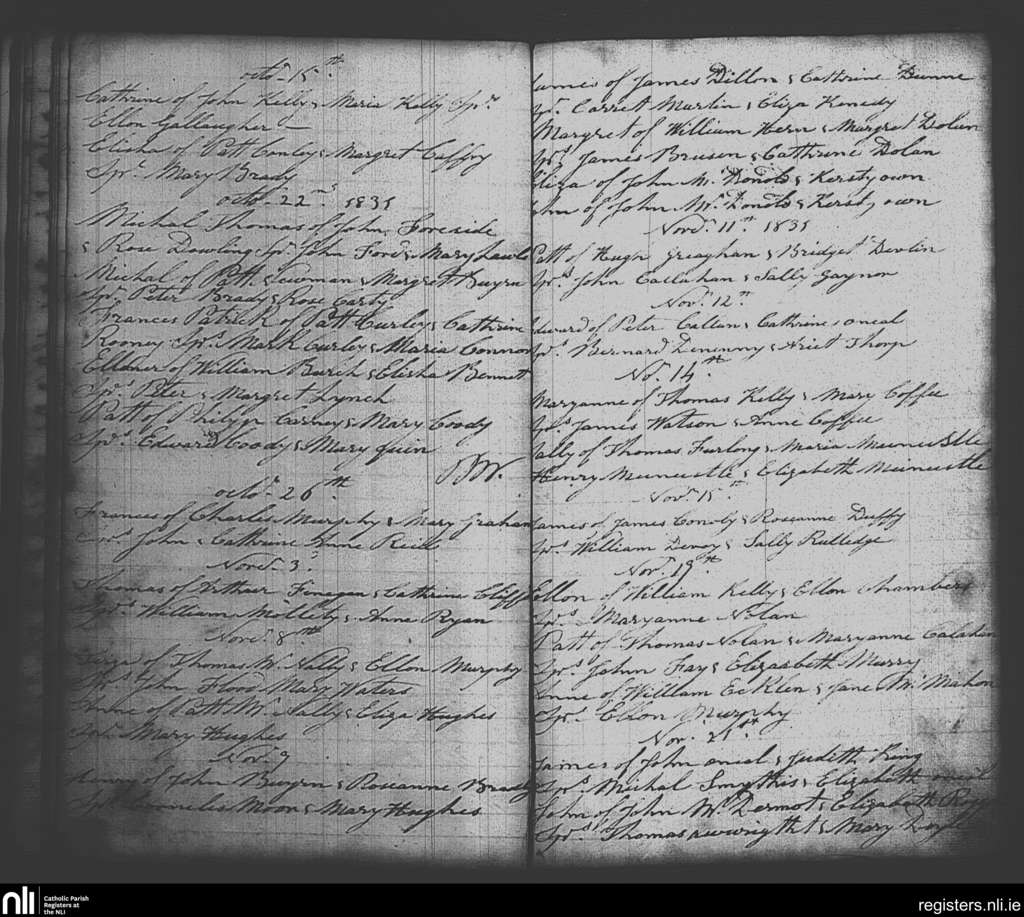 octo. 15th
Cathrine of John Kelly & Maria Kelly Spr.
Ellon Gallaugher —
Elisha of Patt Conley & Margret Caffry
Spr. Mary Brady
octo. 22nd 1835
Michal Thomas of John Foreside
& Rose Dowling Spr. John Ford & Mary Lawle
Michal of Patt Newman & Margret Buyrn
Spr. Peter Brady & Rose Carby
Frances Patrick of Patt Curley & Cathrine
Rooney Sprs. Mark Curley & Maria Connor
Elloner of William Burch & Elisha Bennett
Sprs. Peter & Margret Lynch
Patt of Philip Carney & Mary Coody
Sprs. Edward Coody & Mary Quin
octo. 26th
Frances of Charles Murphy & Mary Graham
Sprs. John & Cathrine Anne Reid
Novr. 3
Thomas of Arthur Finegan & Cathrine Cliff
Sprs. William Mollety & Anna Ryan
Novr. 8th
of Thomas Mc Nally & Ellon Murphy
Sprs. John Flood Mary Waters
Anne of Patt Mc Nally & Eliza Hughes
Spr. Mary Hughes
Nov. 9
Henry of John Buyrn & Roseanne Brady
Cornelis Moon & Mary Hughes
James of James Dillon & Cathrine Dunne
Sprs. Garret Martin & Eliza Kenedy
Margret of William Hern & Margret Dolan
Sprs. James Brusen & Cathrine Dolan
Eliza of John Mc Donolb & Kersty own
John of John Mc Donolb & Kersty own
Novr. 11th 1835
Patt of Hugh Greaghan & Bridget Devlin
Sprs. John Callahan & Sally Gaynor
Novr. 12th
Edward of Peter Callan & Cathrine oneal
Sprs. Bernard Denenny & Ariet Thorp
No. 14th
Maryanne of Thomas Kelly & Mary Coffee
Sprs. James Watson & Anne Coffee
Sally of Thomas Furlong & Maria
Henry & Elizabeth
Novr. 15th
James of James Conoly & Roseanne Duffy
Sprs. William Devoy & Sally Rutledge
Novr. 19th
Ellon of William Kelly & Ellon Chambers
Sprs. Maryanne Nolan
Patt of Thomas Nolan & Maryanne Calahan
Sprs. John Fay & Elizasbeth Murry
Anne of Willam Ecklen & Jane Mc Mahon
Spr. Ellon Murphy
Nov. 21st
James of John oneal & Judith King
Sprs. Michal Smythis & Elizabeth oneil
John of John Mc Dermot & Elizabeth
Sprs. Thomas & Mary Doyle
nli
Catholic Parish
Registers at
the NLI
registers.nli.ie